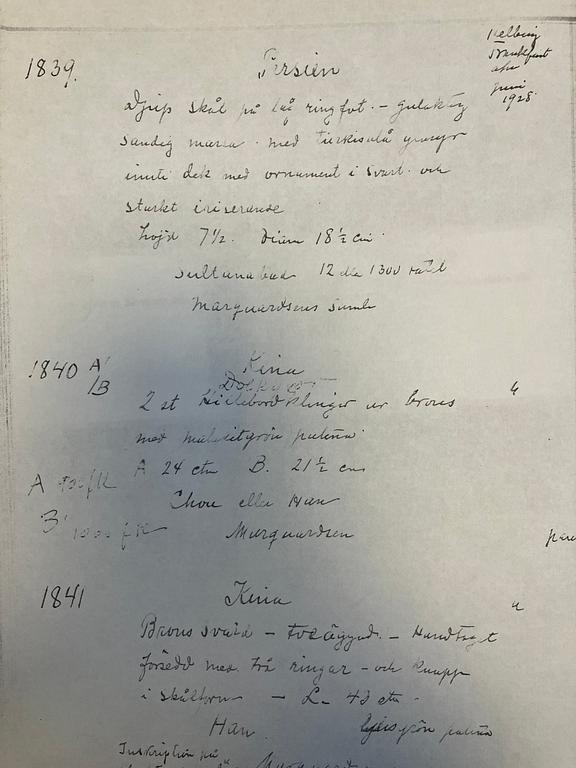 Helbing
Frankfurt
a/m
juni
1928
1839.
Persien
Djup skål på låg ringfot. – gulaktig
sandig massa. med turkisblå glasyr
inuti dek med ornament i svart. och
starkt iriserande
höjd 7½. Diam 18½ cm
Sultanabad 12 1300 tal
Marquardsens saml
1840 A
/B
Kina
2 st klingor ur brons "
med malakitgrön patina
A 24 ctm B. 21½ cm
A 900 fK
Chou eller Han
B 1000 fK
Marquardsen
1841
Kina "
Brons svärd – tveäggad. – Handtaget
försedd med två ringar – och knapp
i skålform – L– 43 ctm.
Han ljusgrön patina
Inskription på